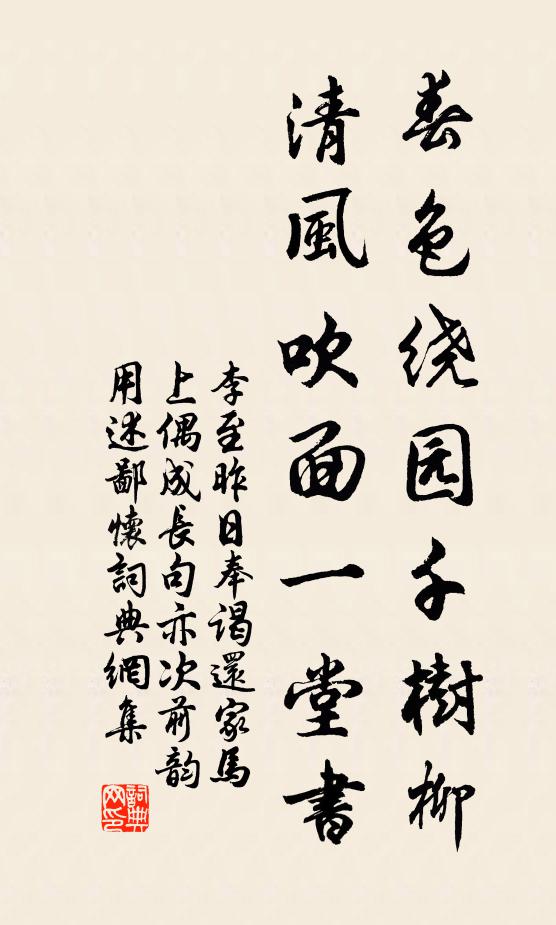 春色绕园千樹柳
清風吹面一堂書
李至昨日奉谒還家馬
上偶成長句亦次前韵
用述鄙懷詞典網集
詞典
网印